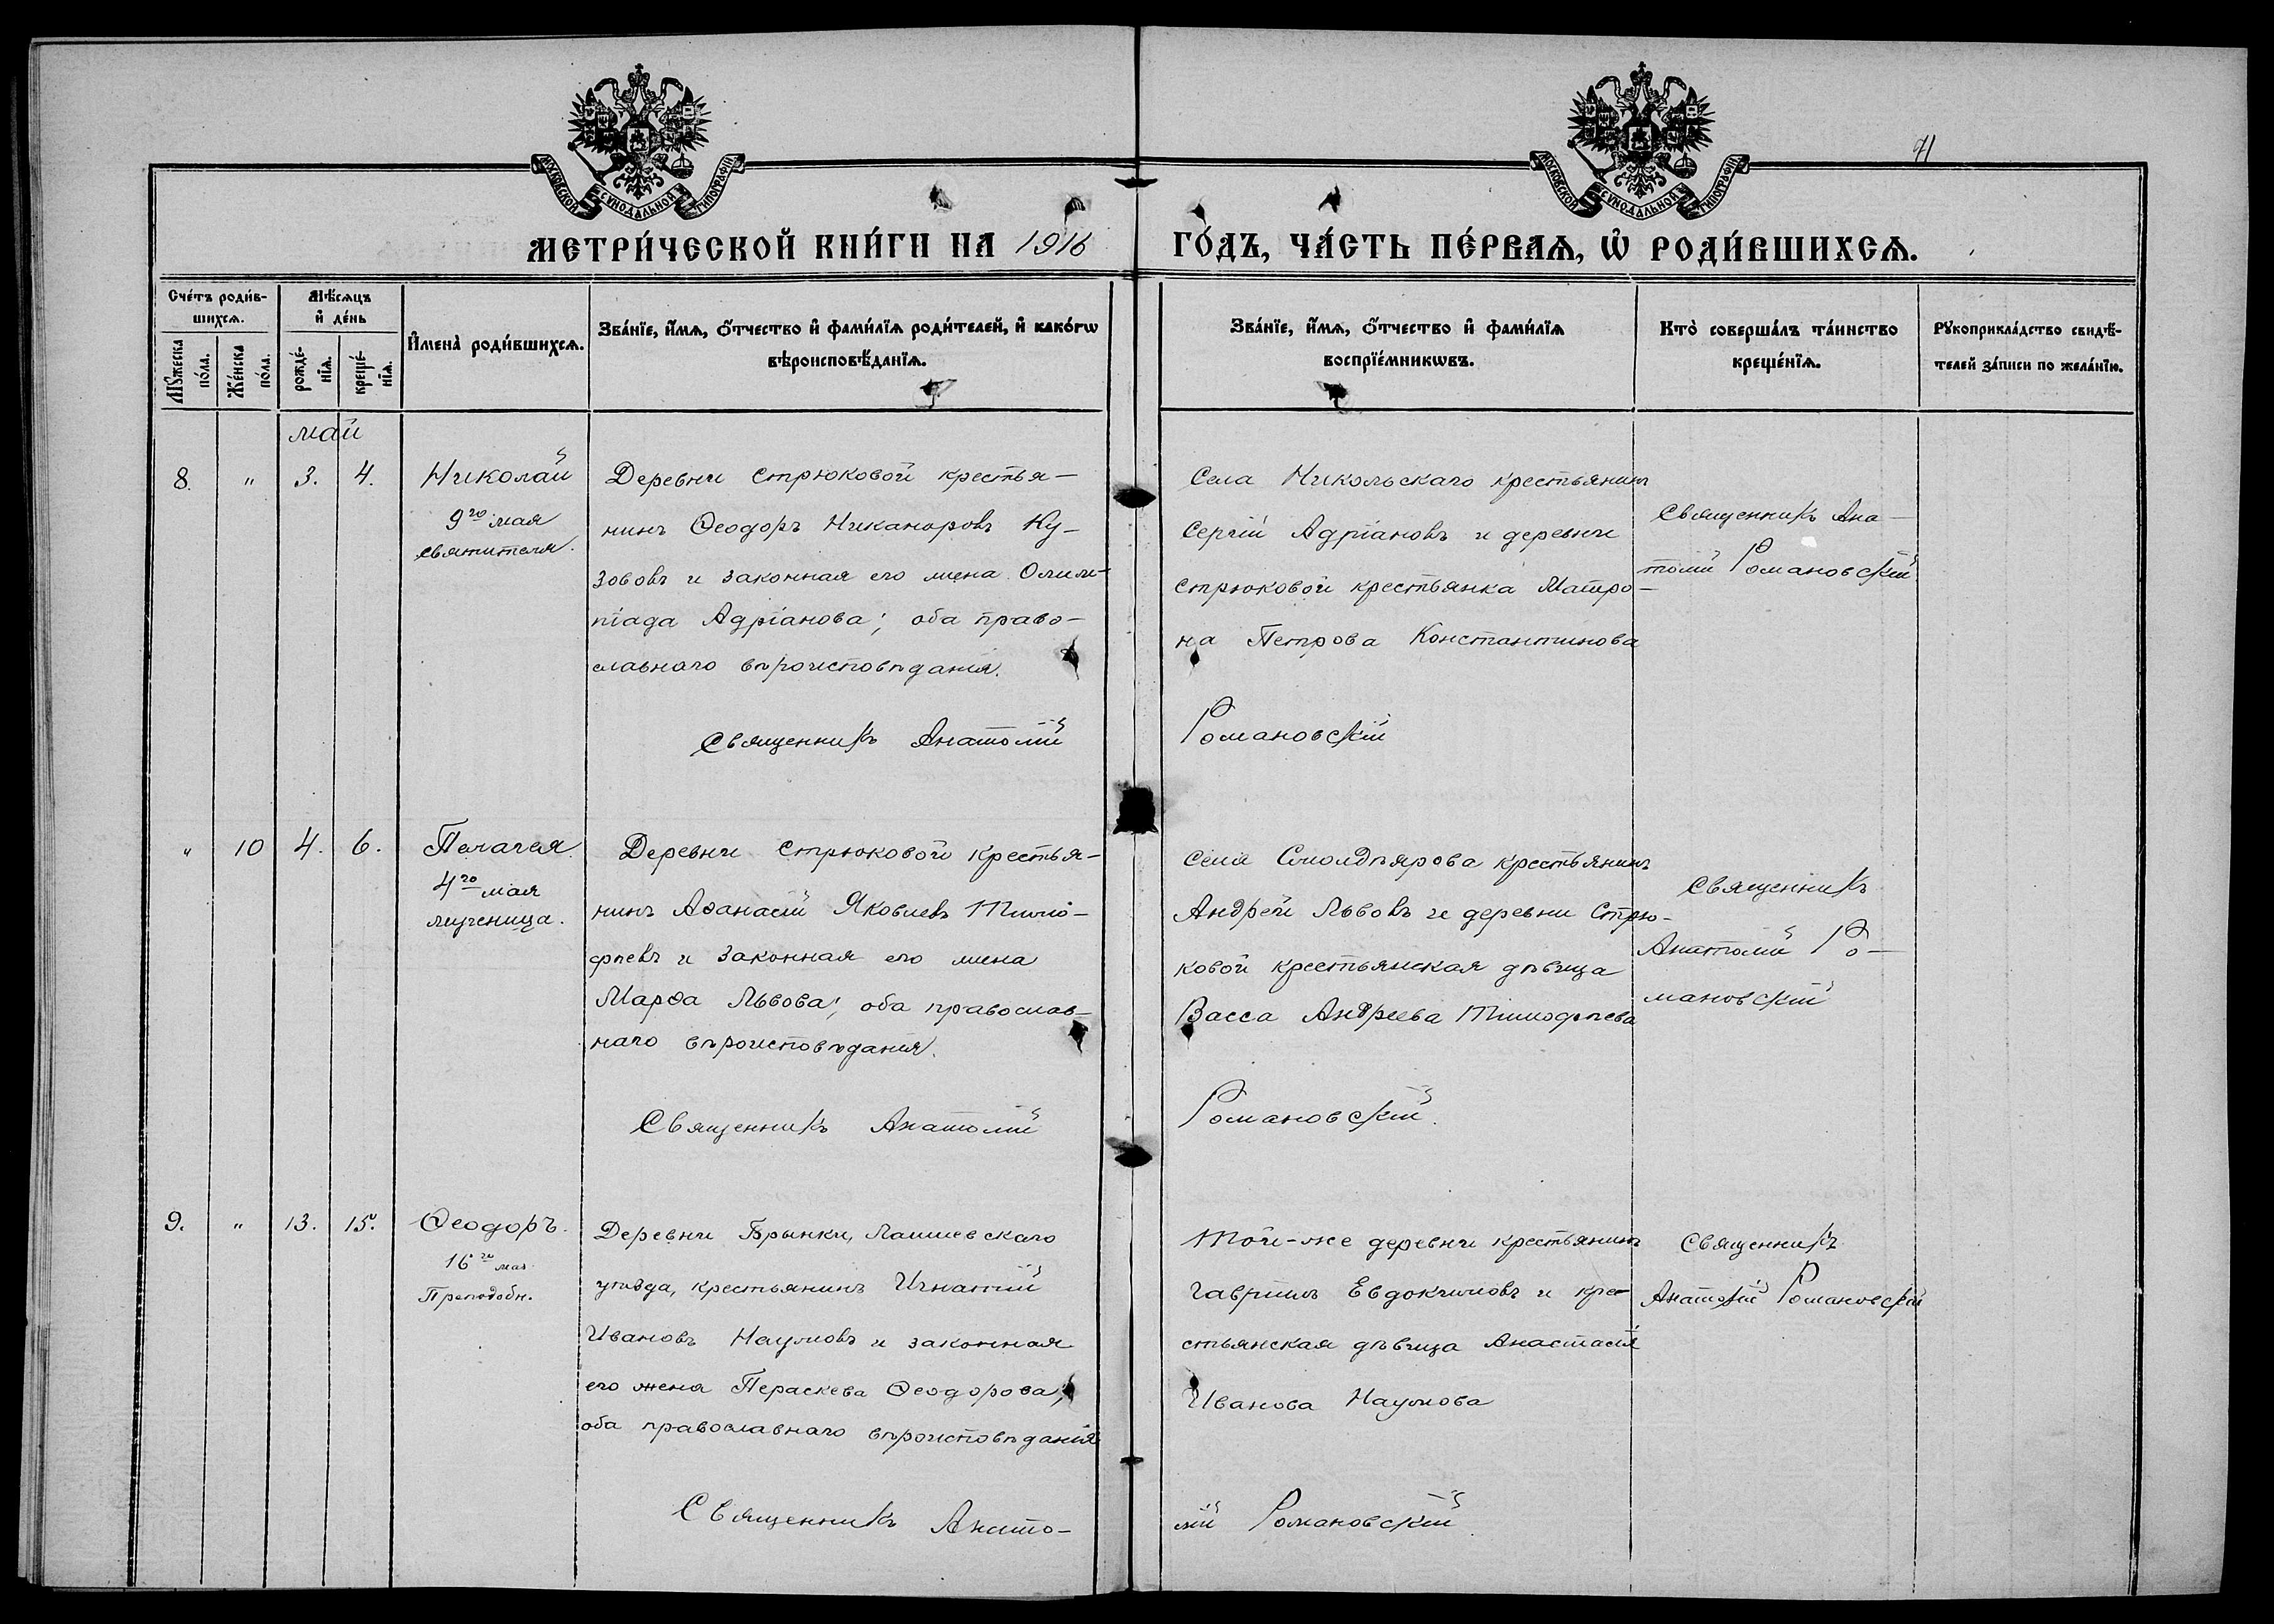 71
МОСКОВСКОЙ СѴНОДАЛЬНОЙ ТИПОГРАФІИ
МОСКОВСКОЙ СѴНОДАЛЬНОЙ ТИПОГРАФІИ
МЕТРИ́ЧЕСКОЙ КНИ́ГИ НА 1916 ГО́ДЪ, ЧА́СТЬ ПЕ́РВАѦ, Ѡ҆ РОДИ́ВШИХСѦ.
Сче́тъ роди́в-
шихсѧ.
Мꙋ́жеска по́ла.
Же́нска по́ла.
Мѣ́сѧцъ
и҆ де́нь
рожде́-
нїѧ.
креще́-
нїѧ.
И҆мена̀ роди́вшихсѧ.
Зва́нїе, и҆́мѧ, ѻ҆́тчество и҆ фами́лїѧ роди́телей, и҆ како́гѡ
вѣроисповѣ́данїѧ.
Зва́нїе, и҆́мѧ, ѻ҆́тчество и҆ фами́лїѧ
воспрїе́мникѡвъ.
Кто̀ соверша́лъ та́инство
креще́нїѧ.
Рꙋкоприкла́дство свидѣ́-
телей за́писи по жела́нїю.
май
8. " 3. 4.
Николай
9го мая
святителя.
Деревни Стрюковой крестья-
нинъ Ѳеодоръ Никаноровъ Ку-
зововъ и законная его жена Олим-
піада Адріанова; оба право-
славнаго вѣроисповѣданія.
Села Никольскаго крестьянинъ
Сергій Адріановъ и деревни
Стрюковой крестьянка Матро-
на Петрова Константинова
Священникъ Ана-
толій Романовскій
Священникъ Анатолій Романовскій
" 10 4. 6.
Пелагея.
4го мая
мученица.
Деревни Стрюковой крестья-
нинъ Аѳанасій Яковлевъ Тимо-
фѣевъ и законная его жена
Марѳа Львова; оба православ-
наго вѣроисповѣданія.
Села Смолдѣярова крестьянинъ
Андрей Львовъ и деревни Стрю-
ковой крестьянская дѣвица
Васса Андреева Тимофѣева
Священникъ
Анатолій Ро-
мановскій
Священникъ Анатолій Романовскій.
9. " 13. 15.
Ѳеодоръ.
16го мая
Преподобн.
Деревни Брынки, Лаишевскаго
уѣзда, крестьянинъ Игнатій
Ивановъ Наумовъ и законная
его жена Параскева Ѳеодорова;
оба православнаго вѣроисповѣданія
Той-же деревни крестьянинъ
Гавріилъ Евдокимовъ и кре-
стьянская дѣвица Анастасія
Иванова Наумова
Священникъ
Анатолій Романовскій
Священникъ Анато-
лій Романовскій.